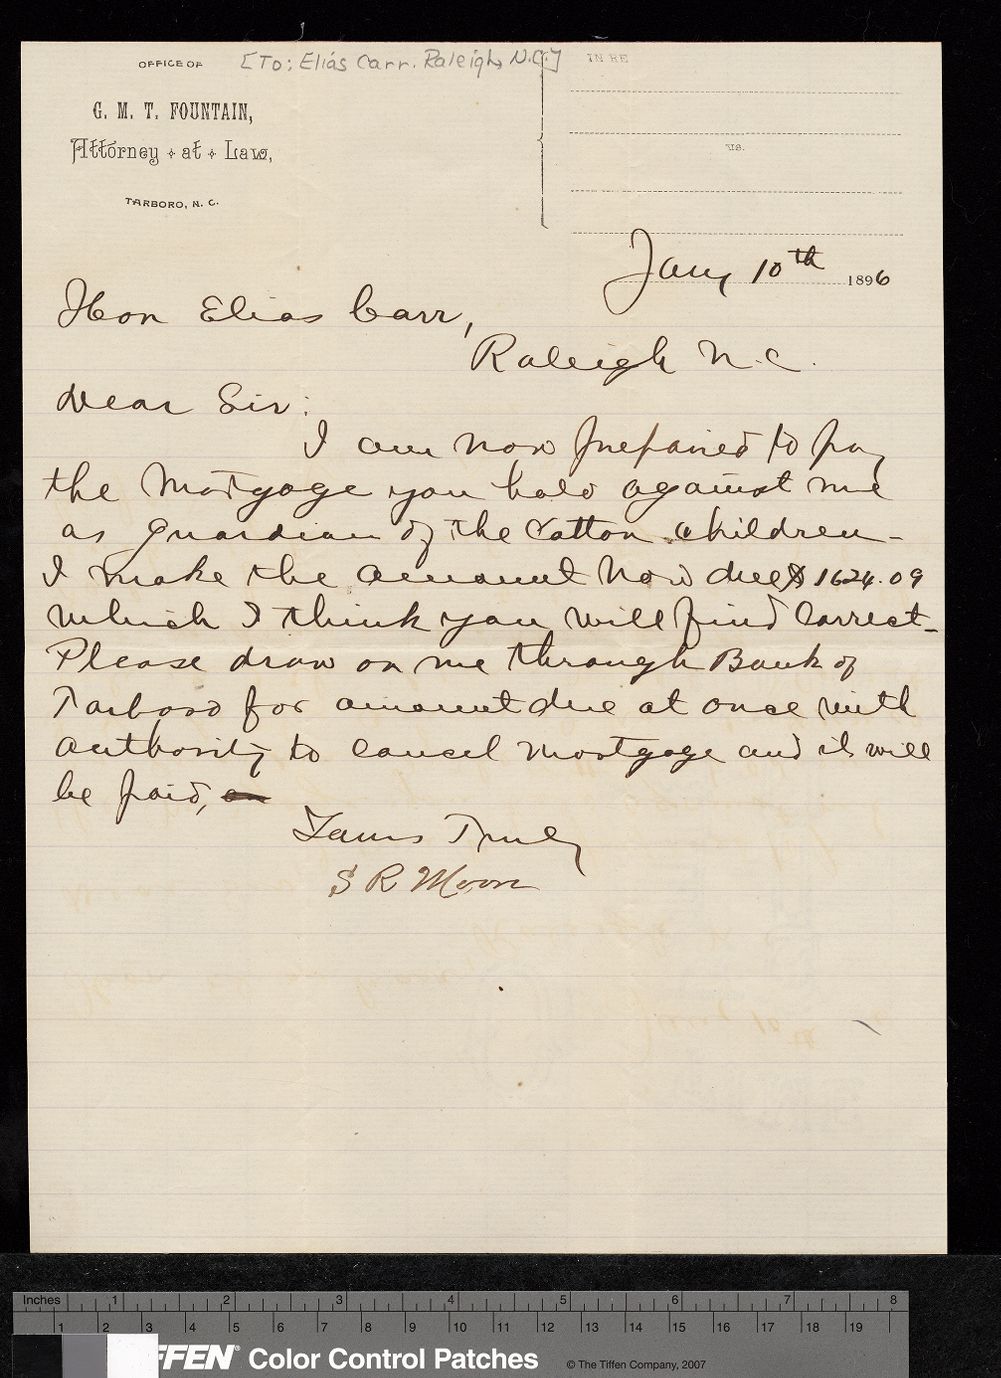 [To: Elias Carr. Raleigh, N.C.]
OFFICE OF
G. M. T. FOUNTAIN,
Attorney at Law,
TARBORO, N. C.
IN RE
vs.
Jany 10th 1896
Hon Elias Carr,
Raleigh N.C.
Dear Sir:
I am now prepared to pay
the Mortgage you hold against me
as guardian of the Cotton children-
I make the amount now due $1624.09
which I think you will find Correct-
Please draw on me through Bank of
Tarboro for amount due at once with
authority to cancel mortgage and it will
be paid,
Yours Truly
S R Moore
Inches 1 2 3 4 5 6 7 8
1 2 3 4 5 6 7 8 9 10 11 12 13 14 15 16 17 18 19
FFEN® Color Control Patches © The Tiffen Company, 2007